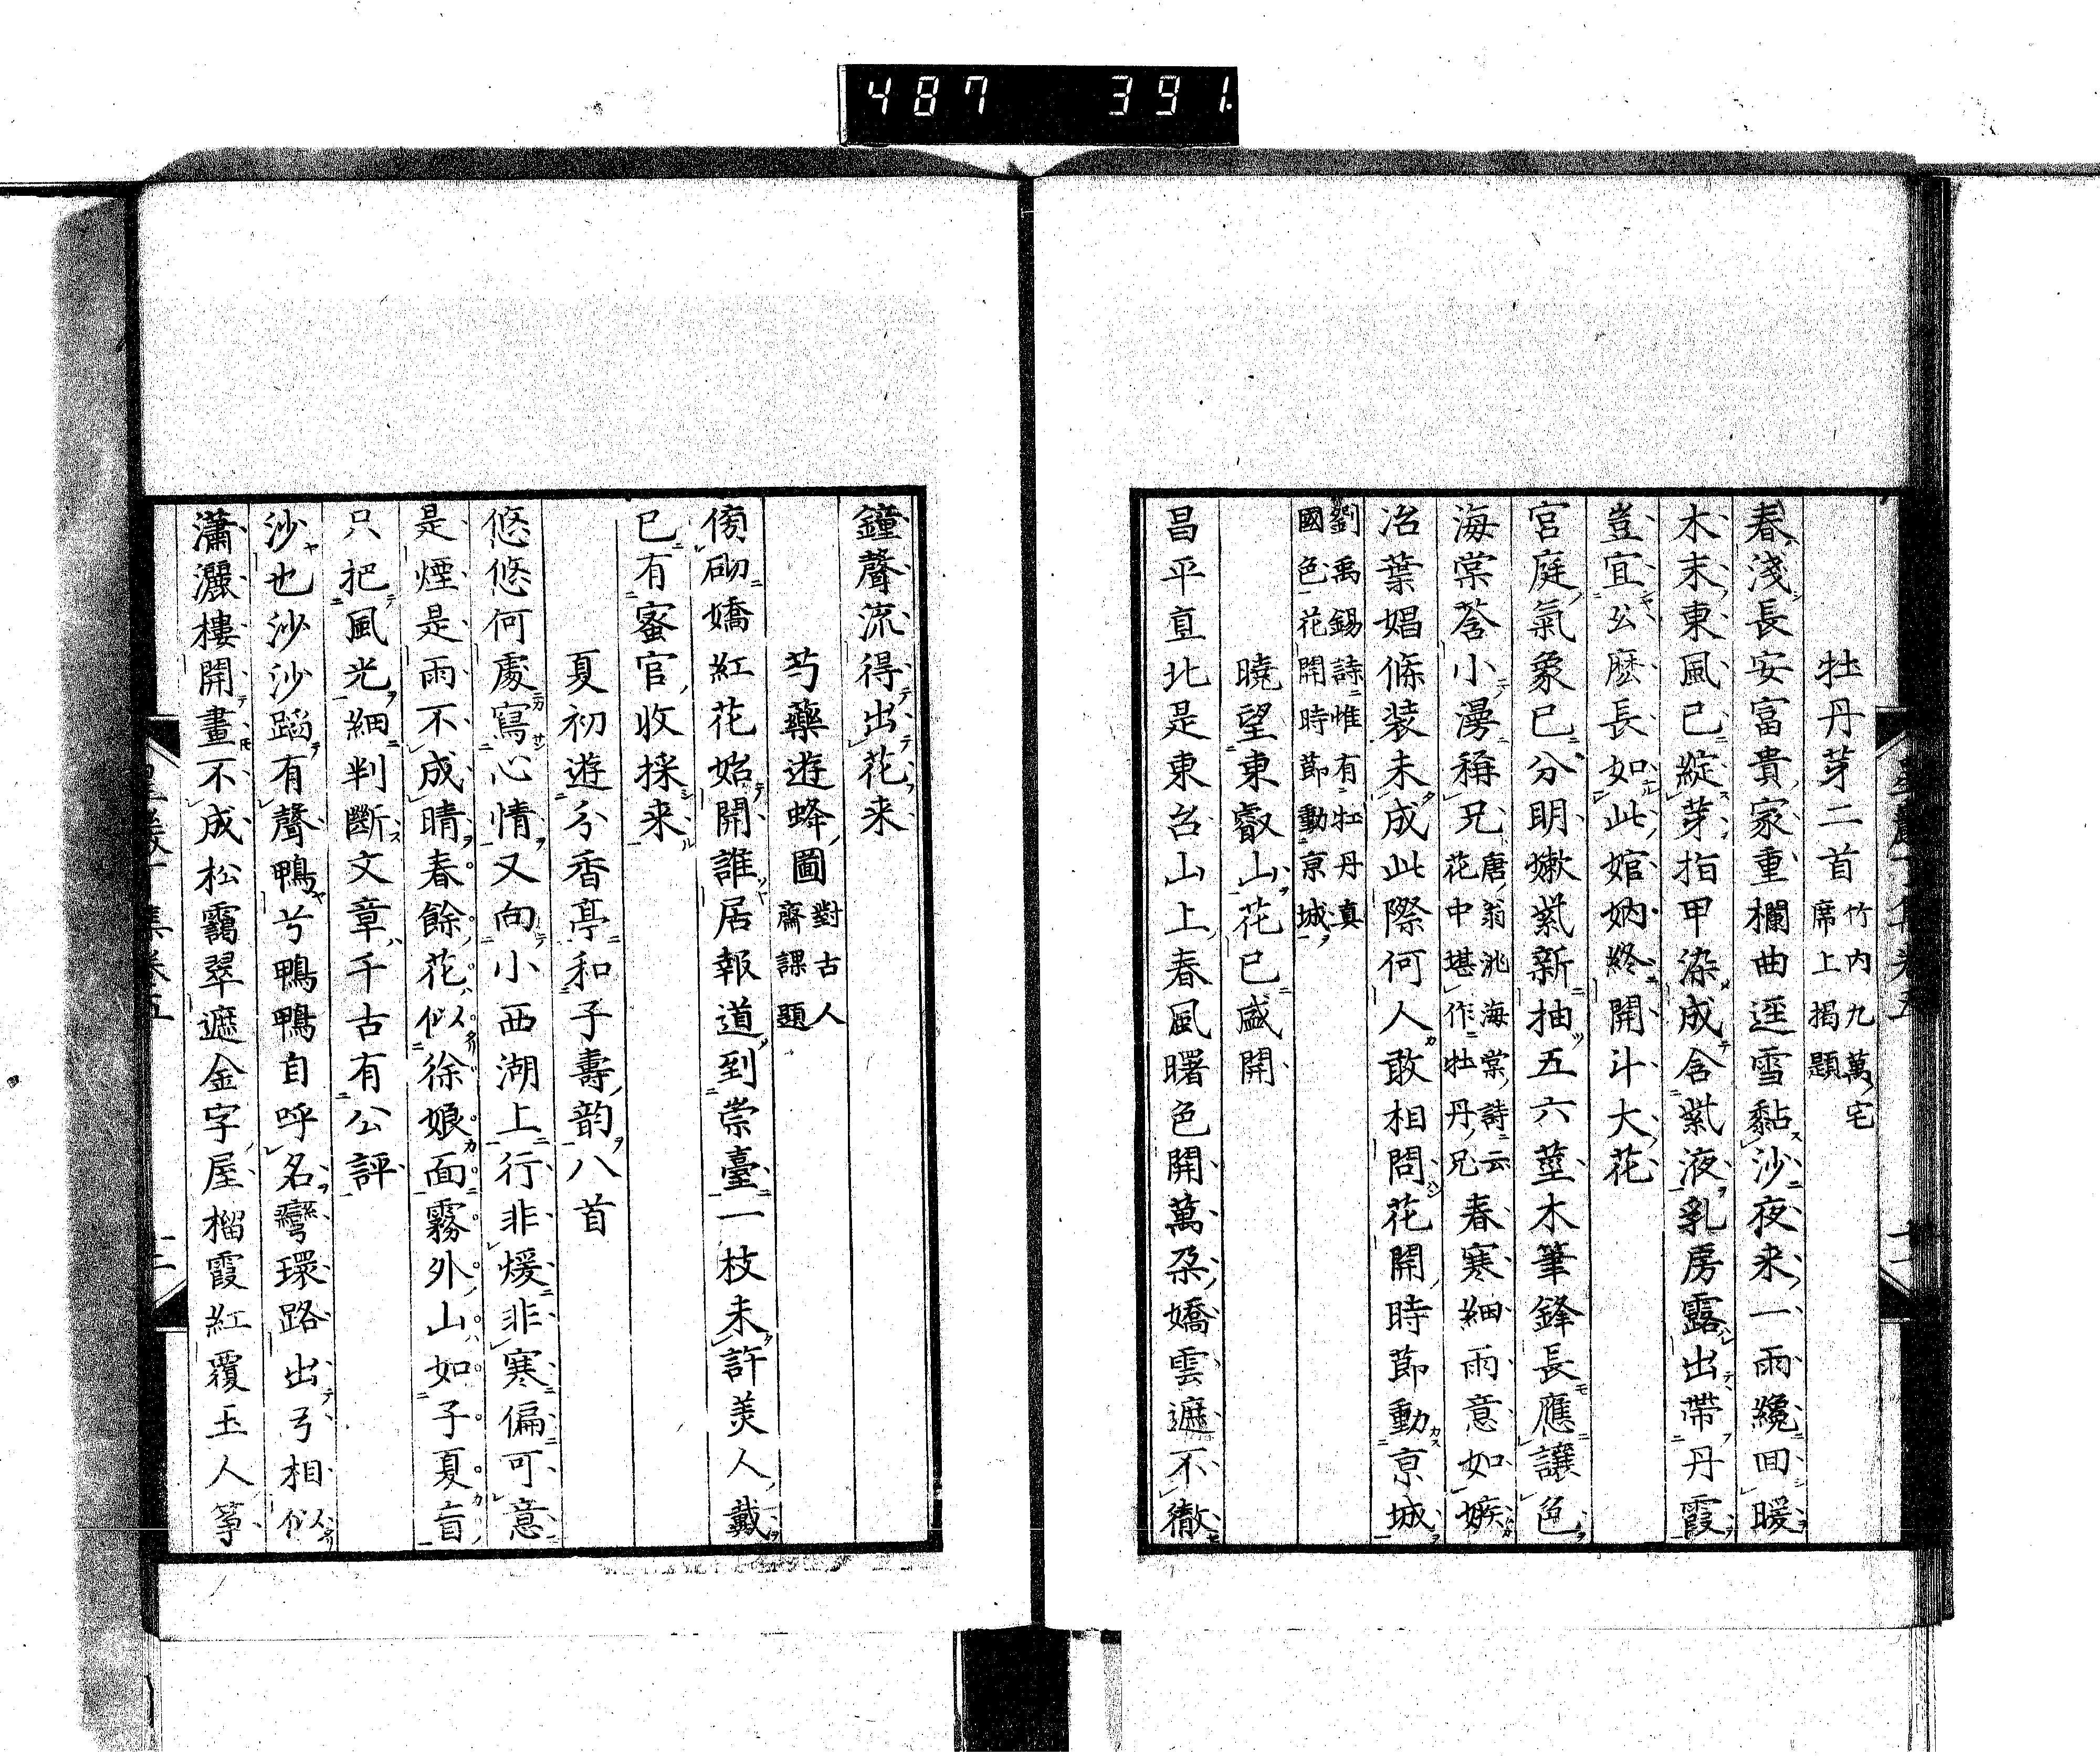 487 391
牡丹芽二首 竹内九萬宅席上掲題
春淺長安富貴家重欄曲逕雪黏沙夜来一雨纔回暖
木末東風已綻芽指甲染成含紫液乳房露出帶丹霞
豈宜公麽長如此婠妠終開斗大花
宮庭氣象已分明嫩紫新抽五六莖木筆鋒長應讓色
海棠菩小漫稱兄 唐翁洮海棠詩云花中堪作牡丹兄 春寒細雨意如嫉
冶葉娼條装未成此際何人敢相問花開時節動亰城
劉禹錫詩惟有牡丹真國色花開時節動亰城
曉望東叡山花已盛開
昌平直北是東台山上春風曙色開萬朶嬌雲遮不徹
鐘聲流得出花来
芍藥遊蜂圖 對古人齋課題
傍砌嬌紅花始開誰居報道到崇臺一枝未許美人戴
已有蜜官收採来
夏初遊分香亭和子壽韵八首
悠悠何處寫心情又向小西湖上行非煖非寒偏可意
是煙是雨不成晴春餘花似徐娘面霧外山如子夏盲
只把風光細判斷文章千古有公評
沙也沙沙蹈有聲鴨兮鴨鴨自呼名彎環路出弓相似
瀟灑樓開畫不成松靄翠遮金字屋榴霞紅覆玉人筝